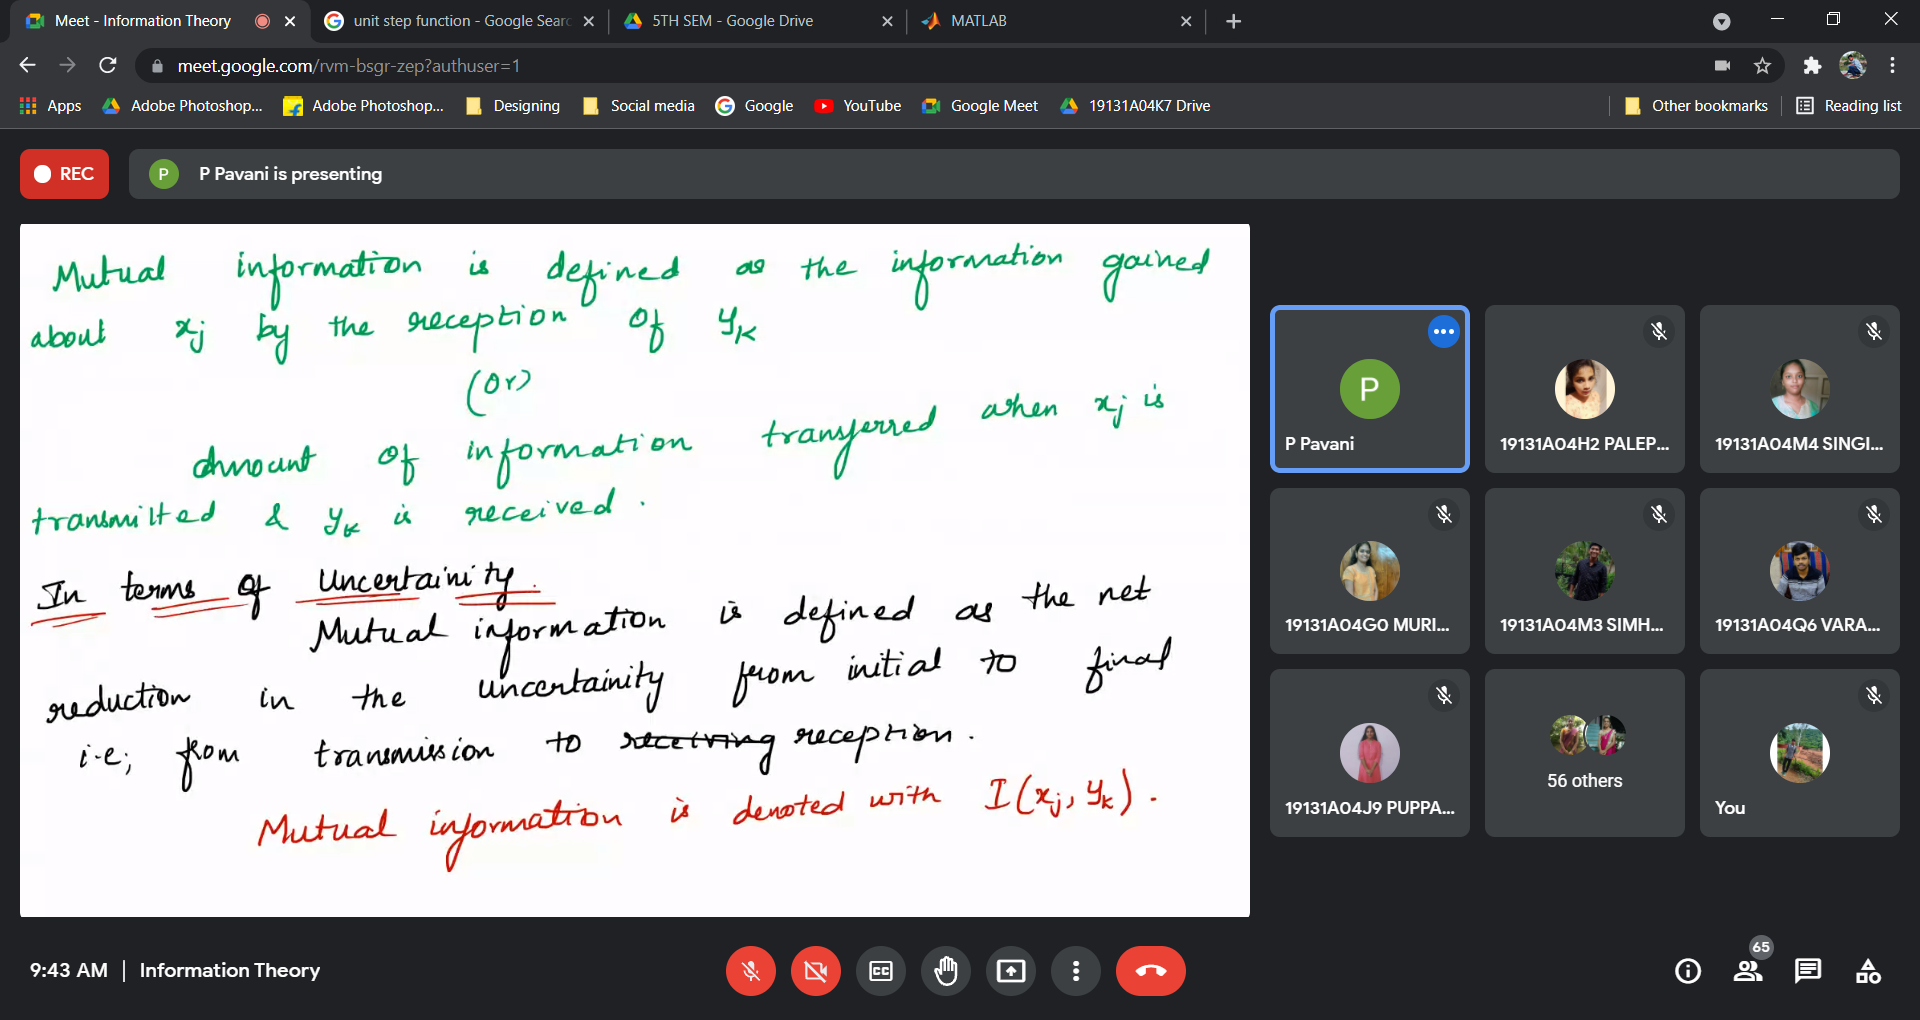 Meet - Information Theory
unit step function - Google Searc
5TH SEM - Google Drive
MATLAB
meet.google.com/rvm-bsgr-zep?authuser=1
Apps
Adobe Photoshop...
Adobe Photoshop...
Designing
Social media
Google
YouTube
Google Meet
19131A04K7 Drive
Other bookmarks
Reading list
REC
P
P Pavani is presenting
Mutual information is defined as the information gained
about xj by the reception of yk
(or)
Amount of information transferred when xj is
transmitted & yk is received.
In terms of Uncertainity.
Mutual information is defined as the net
reduction in the uncertainity from initial to final
i.e; from transmission to receiving reception.
Mutual information is denoted with I(xj, yk).
P
P Pavani
19131A04H2 PALEP...
19131A04M4 SINGI...
19131A04G0 MURI...
19131A04M3 SIMH...
19131A04Q6 VARA...
19131A04J9 PUPPA...
56 others
You
9:43 AM | Information Theory
CC
65